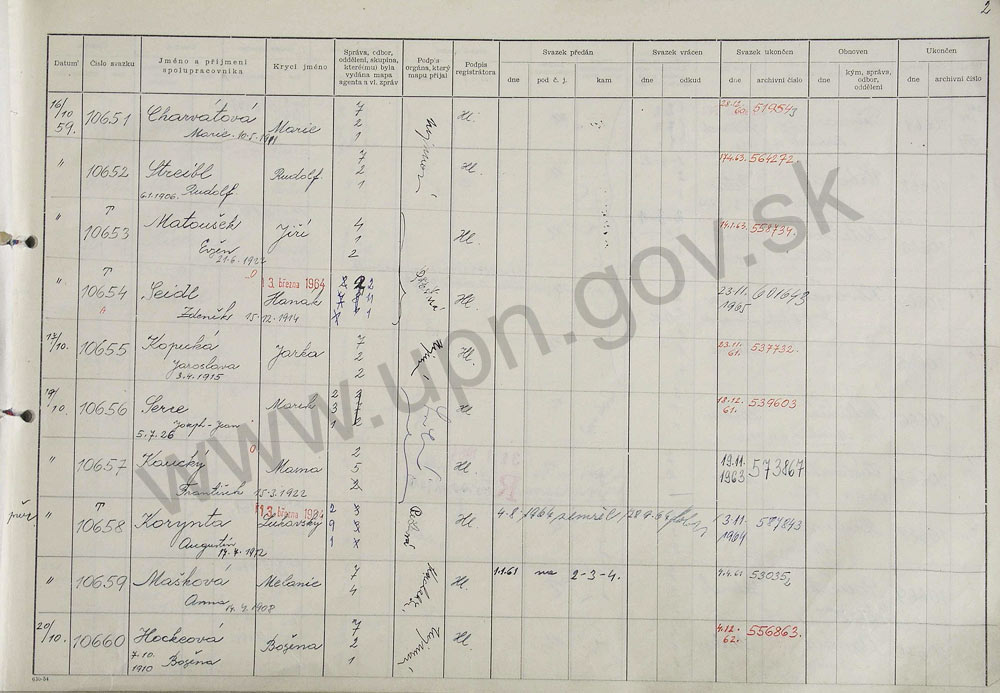 2
Datum
Číslo svazku
Jméno a příjmení spolupracovníka
Krycí jméno
Správa, odbor, oddělení, skupina, které(mu) byla vydána mapa agenta a vl. zpráv
Podpis orgána, který mapu přijal
Podpis registrátora
Svazek předán
dne pod č. j. kam
Svazek vrácen
dne odkud
Svazek ukončen
dne archivní číslo
Obnoven
dne kým, správa, odbor, oddělení
Ukončen
dne archivní číslo
16/10 59. 10651 Charvátová Marie 7 2 1 Hl. 519543
Marie 10.5.1911
" 10652 Streibl Rudolf 7 2 1 Hl. 17.4.63. 564272
6.1.1906. Rudolf
" T 10653 Matoušek Jiří 4 1 2 Hl. 14.1.63. 558734.
Evžen
" T 10654 Seidl 13. března 1964 Hanak Hl. 23.11. 1965 601643
Zdeněk 15.12.1914
10. 10655 Kopecká Jarka 7 2 2 Hl. 23.11. 61. 537732.
Jaroslava
3.4.1915
19/10. 10656 Serce Marek Hl 18.12. 61. 539603
5.7.26 Joseph-Jean
" 10657 Koucký Mama 2 5 2 Hl 19.11. 1963 573867
František 15.3.1922
T 10658 Korynta 13. března 1964 Žukovský Hl. 4.8.1964 zemřel 3.11. 1964 587843
Augustin 14.4.1912
" 10659 Mašková Melanie 7 4 Hl. 1.1.61 na 2-3-4. 4.4.61 53035
Anna 14.4.1908
20/10. 10660 Hockeová Božena 7 2 1 Hl. 4.12. 62. 556863.
7.10. 1910 Božena
630-54
www.upn.gov.sk